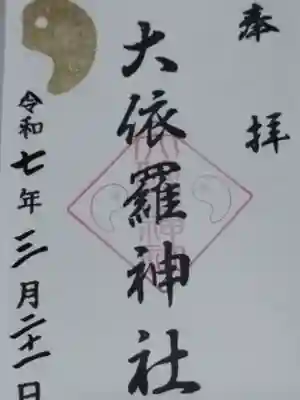 奉拝
大依羅神社
令和七年三月二十一日